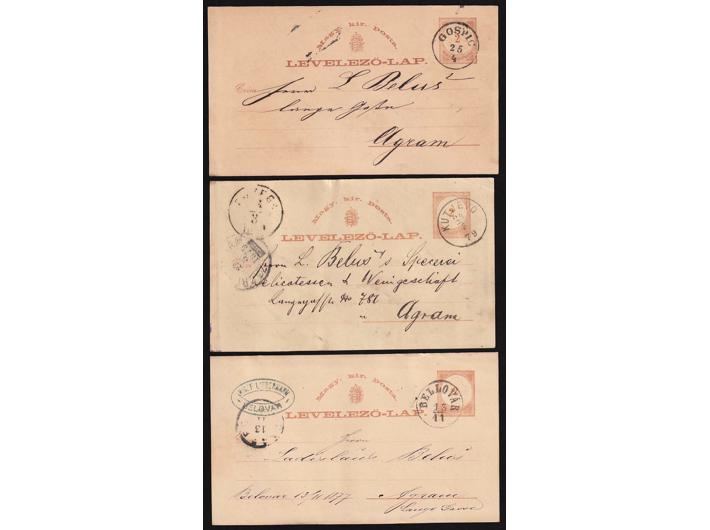 Magy. kir. posta.
GOSPIĆ
25
4
2
LEVELEZŐ-LAP.
Herrn L Beluš
lange Gaße
Agram
Magy. kir. posta.
KUTJEVO
79
LEVELEZŐ-LAP.
Herrn L. Beluš's Specerei
Delicatessen & Weingeschäft
Langegasse No 781
Agram
Magy. kir. posta.
BELLOVÁR
13
11
BELOVAR
13
LEVELEZŐ-LAP.
Herrn
Ladislaus Beluš
Belovar 13/11 1877
Agram
Lange